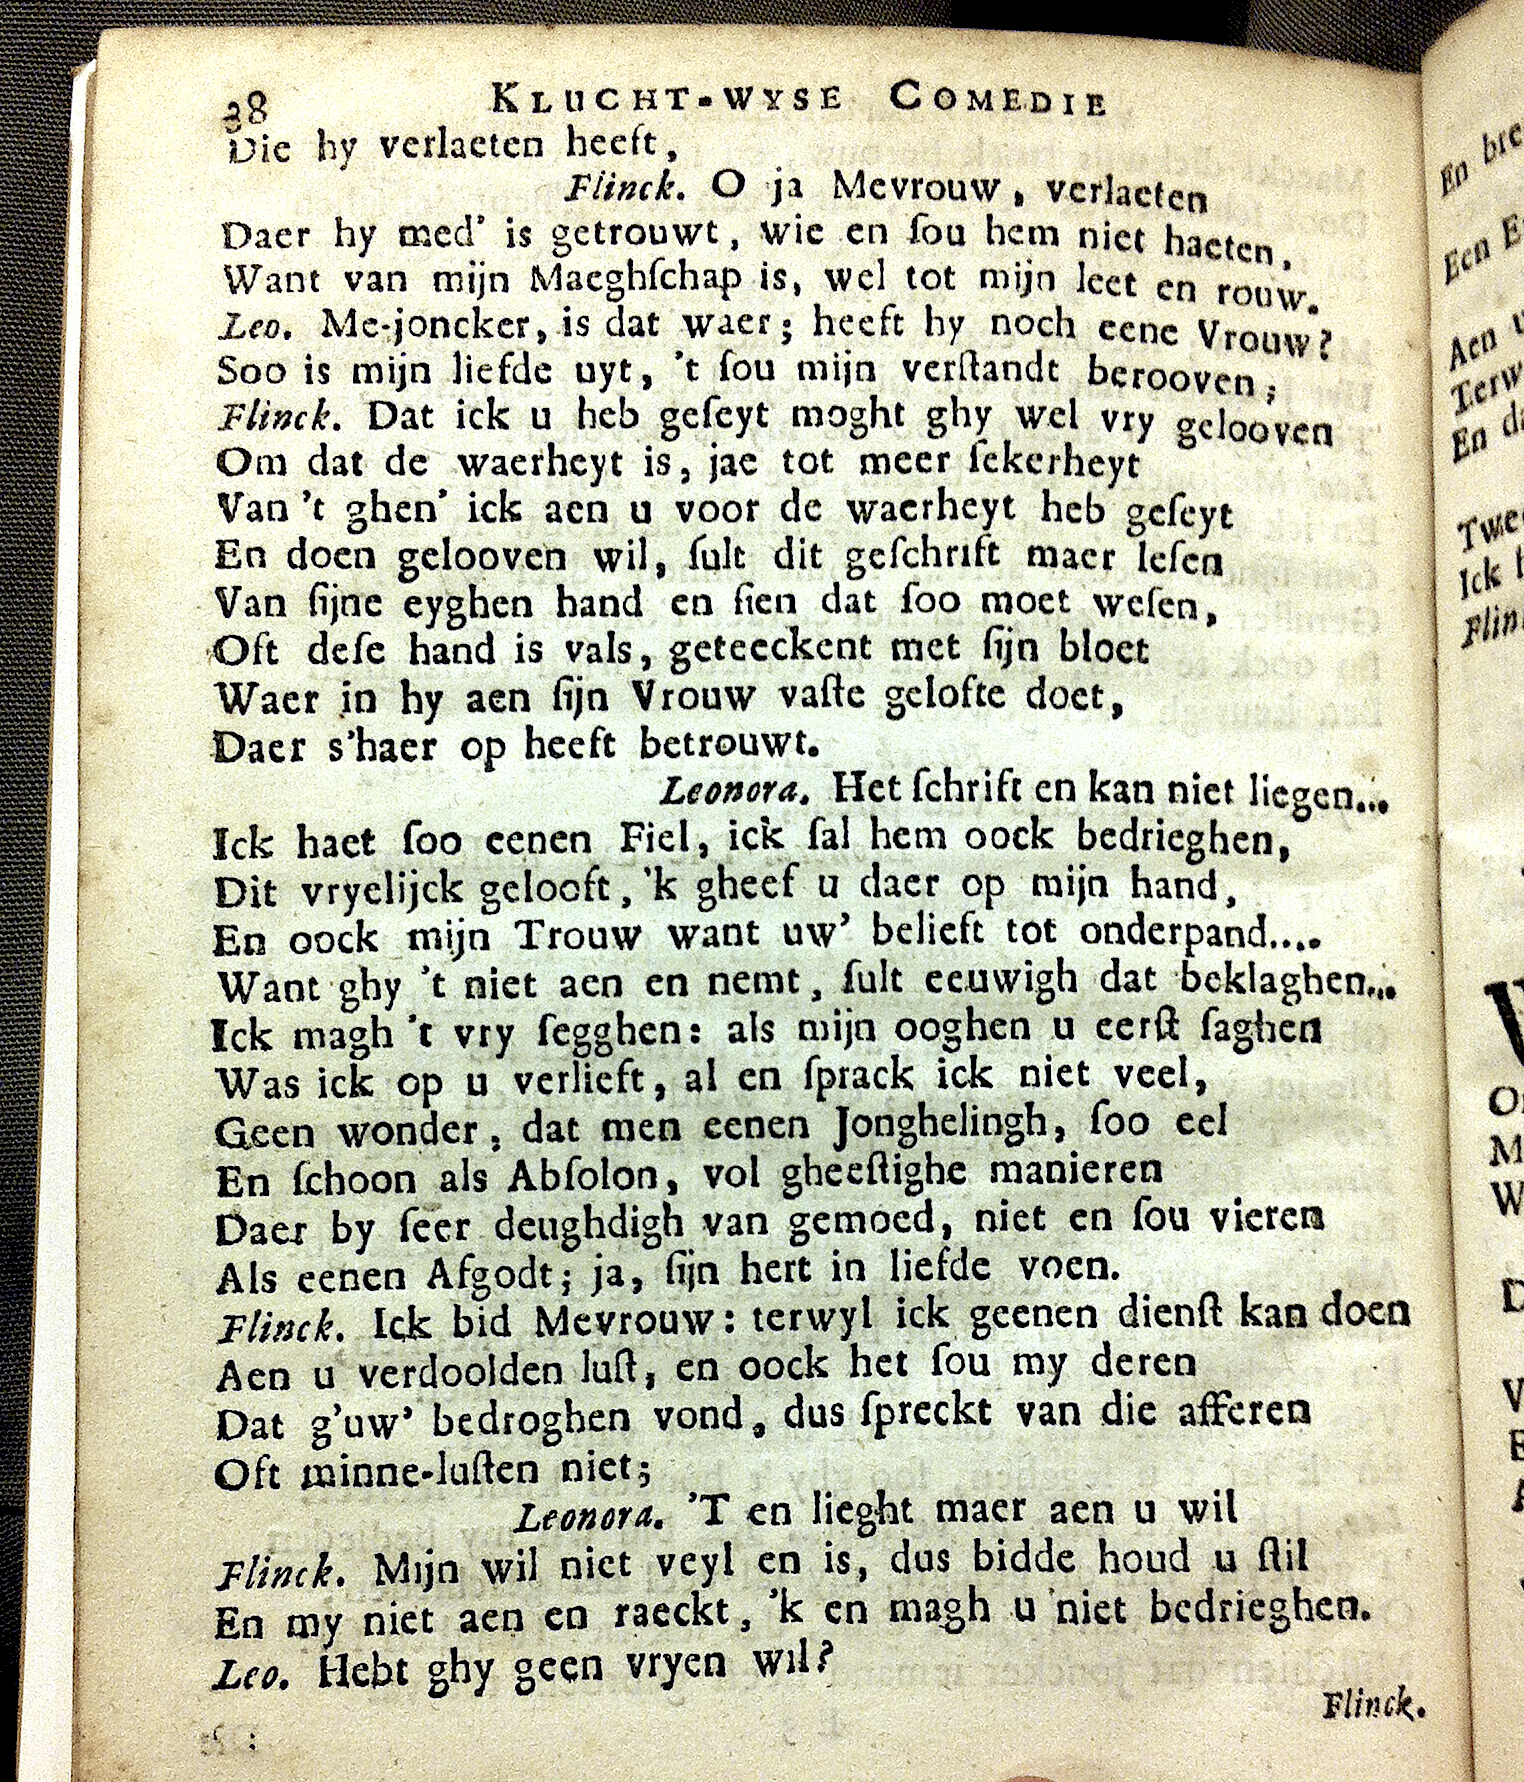 38 KLUCHT-WYSE COMEDIE
Die hy verlaeten heeft,
Flinck. O ja Mevrouw, verlaeten
Daer hy med' is getrouwt, wie en ſou hem niet haeten,
Want van mijn Maeghſchap is, wel tot mijn leet en rouw.
Leo. Me-joncker, is dat waer; heeft hy noch eene Vrouw?
Soo is mijn liefde uyt, 't ſou mijn verſtandt berooven;
Flinck. Dat ick u heb geſeyt moght ghy wel vry gelooven
Om dat de waerheyt is, jae tot meer ſekerheyt
Van 't ghen' ick aen u voor de waerheyt heb geſeyt
En doen gelooven wil, ſult dit geſchrift maer leſen
Van ſijne eyghen hand en ſien dat ſoo moet weſen,
Oft deſe hand is vals, geteeckent met ſijn bloet
Waer in hy aen ſijn Vrouw vaſte gelofte doet,
Daer s'haer op heeft betrouwt.
Leonora. Het ſchrift en kan niet liegen...
Ick haet ſoo eenen Fiel, ick ſal hem oock bedrieghen,
Dit vryelijck gelooft, 'k gheef u daer op mijn hand,
En oock mijn Trouw want uw' belieft tot onderpand....
Want ghy 't niet aen en nemt, ſult eeuwigh dat beklaghen...
Ick magh 't vry ſegghen: als mijn ooghen u eerſt ſaghen
Was ick op u verlieft, al en ſprack ick niet veel,
Geen wonder, dat men eenen Jonghelingh, ſoo eel
En ſchoon als Abſolon, vol gheeſtighe manieren
Daer by ſeer deughdigh van gemoed, niet en ſou vieren
Als eenen Afgodt; ja, ſijn hert in liefde voen.
Flinck. Ick bid Mevrouw: terwyl ick geenen dienſt kan doen
Aen u verdoolden luſt, en oock het ſou my deren
Dat g'uw' bedroghen vond, dus ſpreckt van die afferen
Oft minne-luſten niet;
Leonora. 'T en lieght maer aen u wil
Flinck. Mijn wil niet veyl en is, dus bidde houd u ſtil
En my niet aen en raeckt, 'k en magh u niet bedrieghen.
Leo. Hebt ghy geen vryen wil?
Flinck.
En
Een
Aen
En
Ick